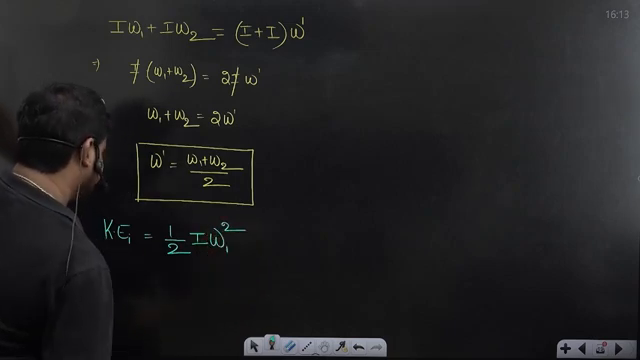 16:13
Iω₁ + Iω₂ = (I + I) ω'
⇒ I (ω₁+ω₂) = 2I ω'
ω₁ + ω₂ = 2ω'
ω' = (ω₁+ω₂)/2
K.Eᵢ = 1/2 Iω₁²